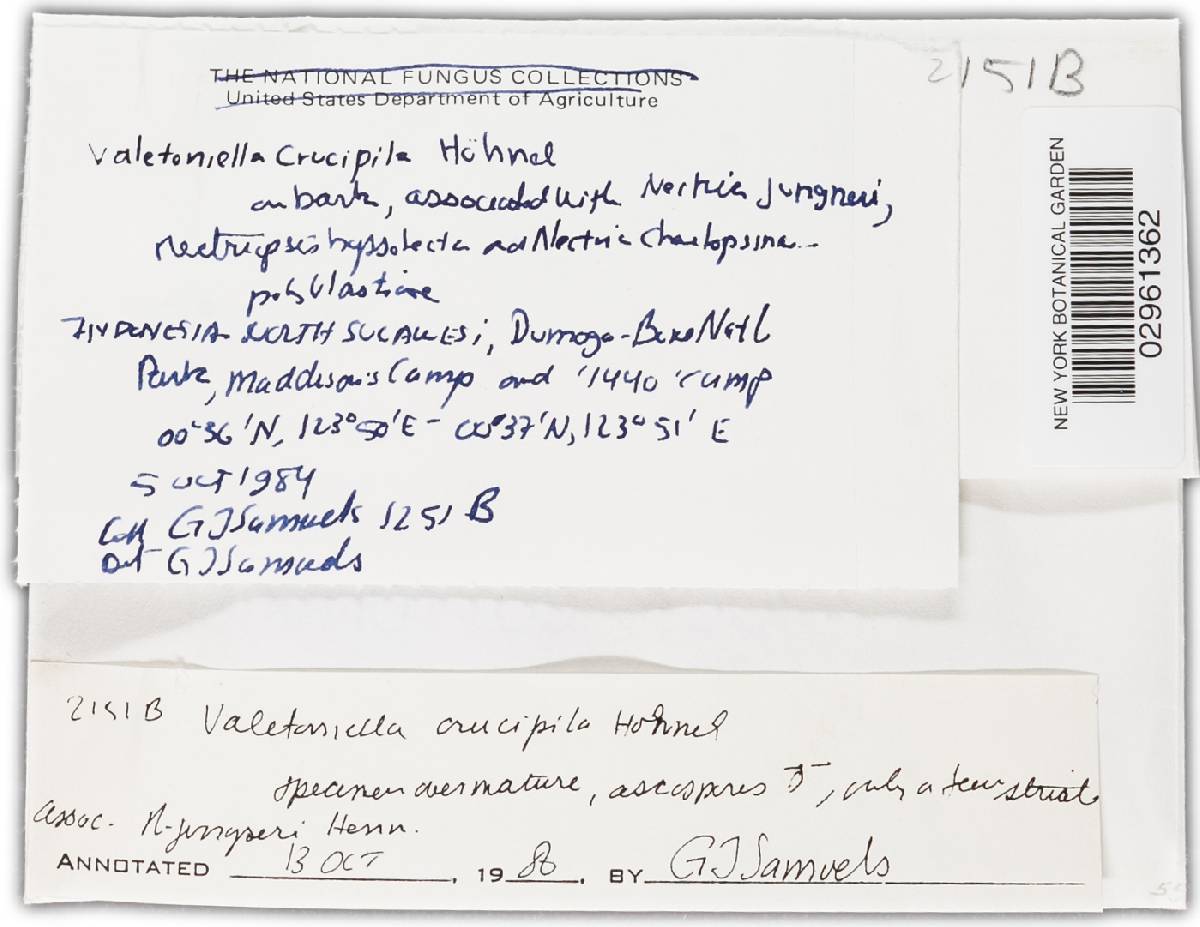 THE NATIONAL FUNGUS COLLECTIONS
United States Department of Agriculture
2151B
Valetoniella Crucipila Höhnel
on bark, associated with Nectria jungneri,
Nectriopsis byssotecta and Nectria Chaetopsina-
polyblastiae
INDONESIA NORTH SULAWESI, Dumoga-Bone Natl
Park, Maddison's Camp and '1440' camp
00°36'N, 123°50'E - 00°37'N, 123°51'E
5 OCT 1984
Coll GJSamuels 1251 B
Det GJSamuels
NEW YORK BOTANICAL GARDEN
02961362
2151B Valetoniella crucipila Höhnel
specimen overmature, ascospores, only a few striate
assoc. N. jungneri Henn.
ANNOTATED 13 OCT, 1986. BY GJSamuels